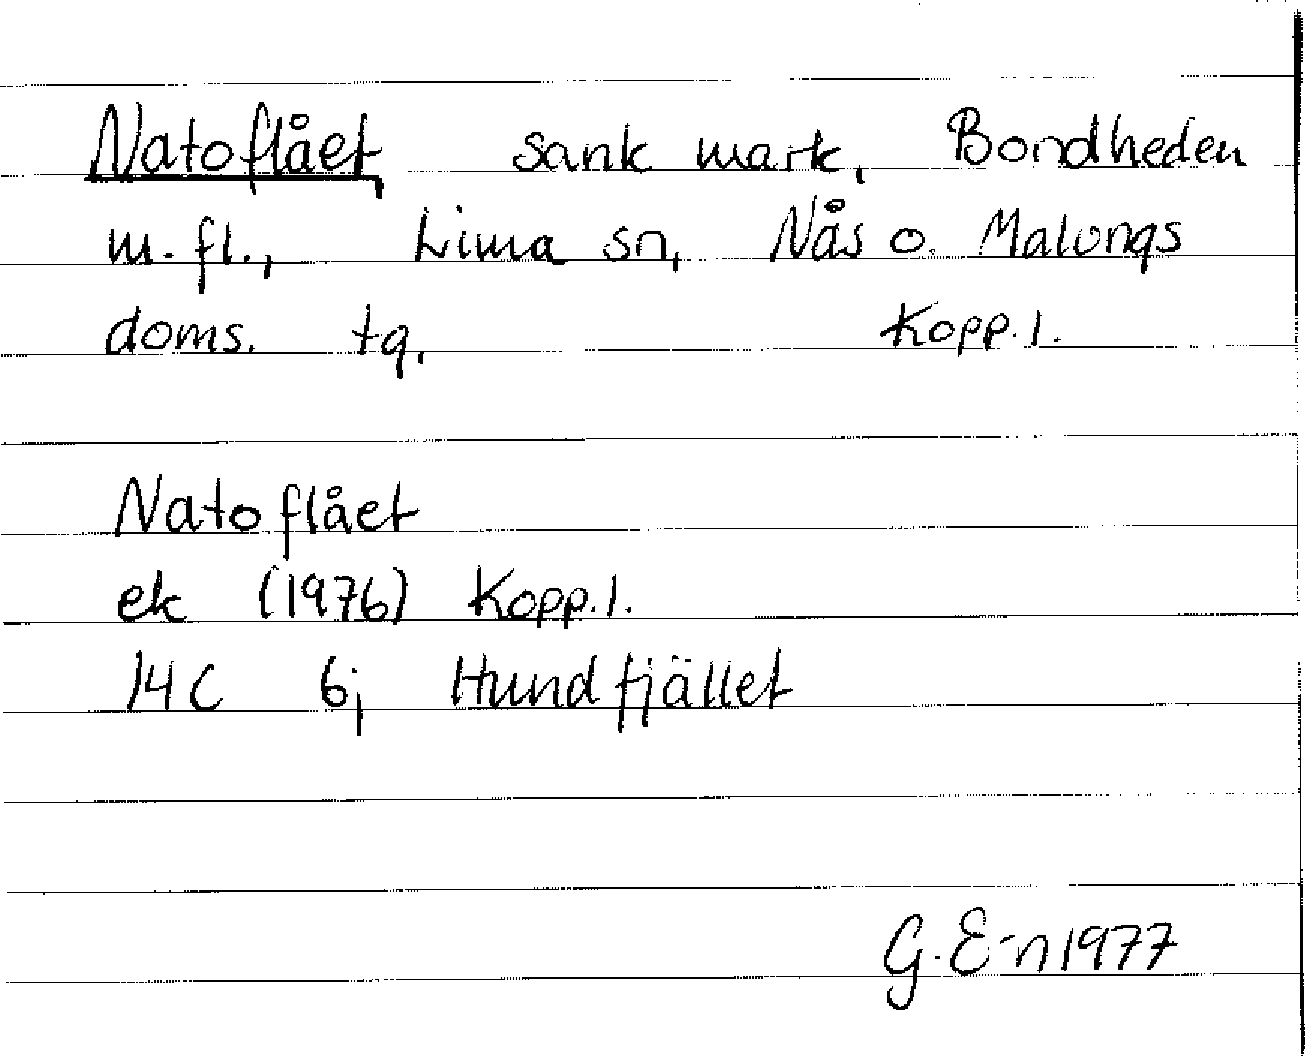 Natoflået, sank mark, Bondheden
m.fl., Lima sn, Nås o. Malungs
doms. tg, Kopp. l.
Natoflået
ek (1976) Kopp. l.
14C 6j Hundfjället
G. E-n 1977